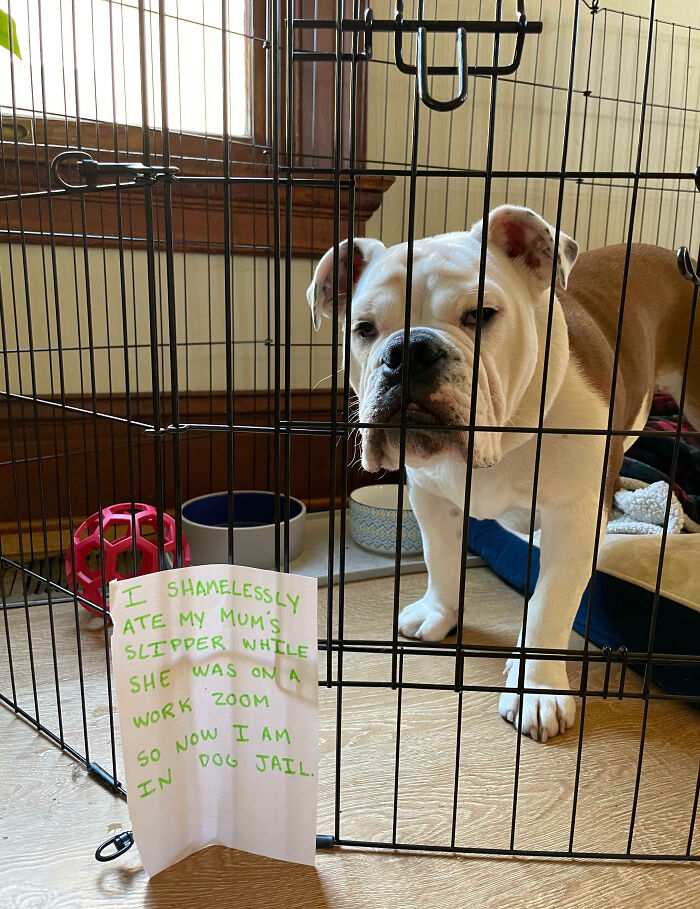 I SHAMELESSLY
ATE MY MUM'S
SLIPPER WHILE
SHE WAS ON A
WORK ZOOM
SO NOW I AM
IN DOG JAIL.